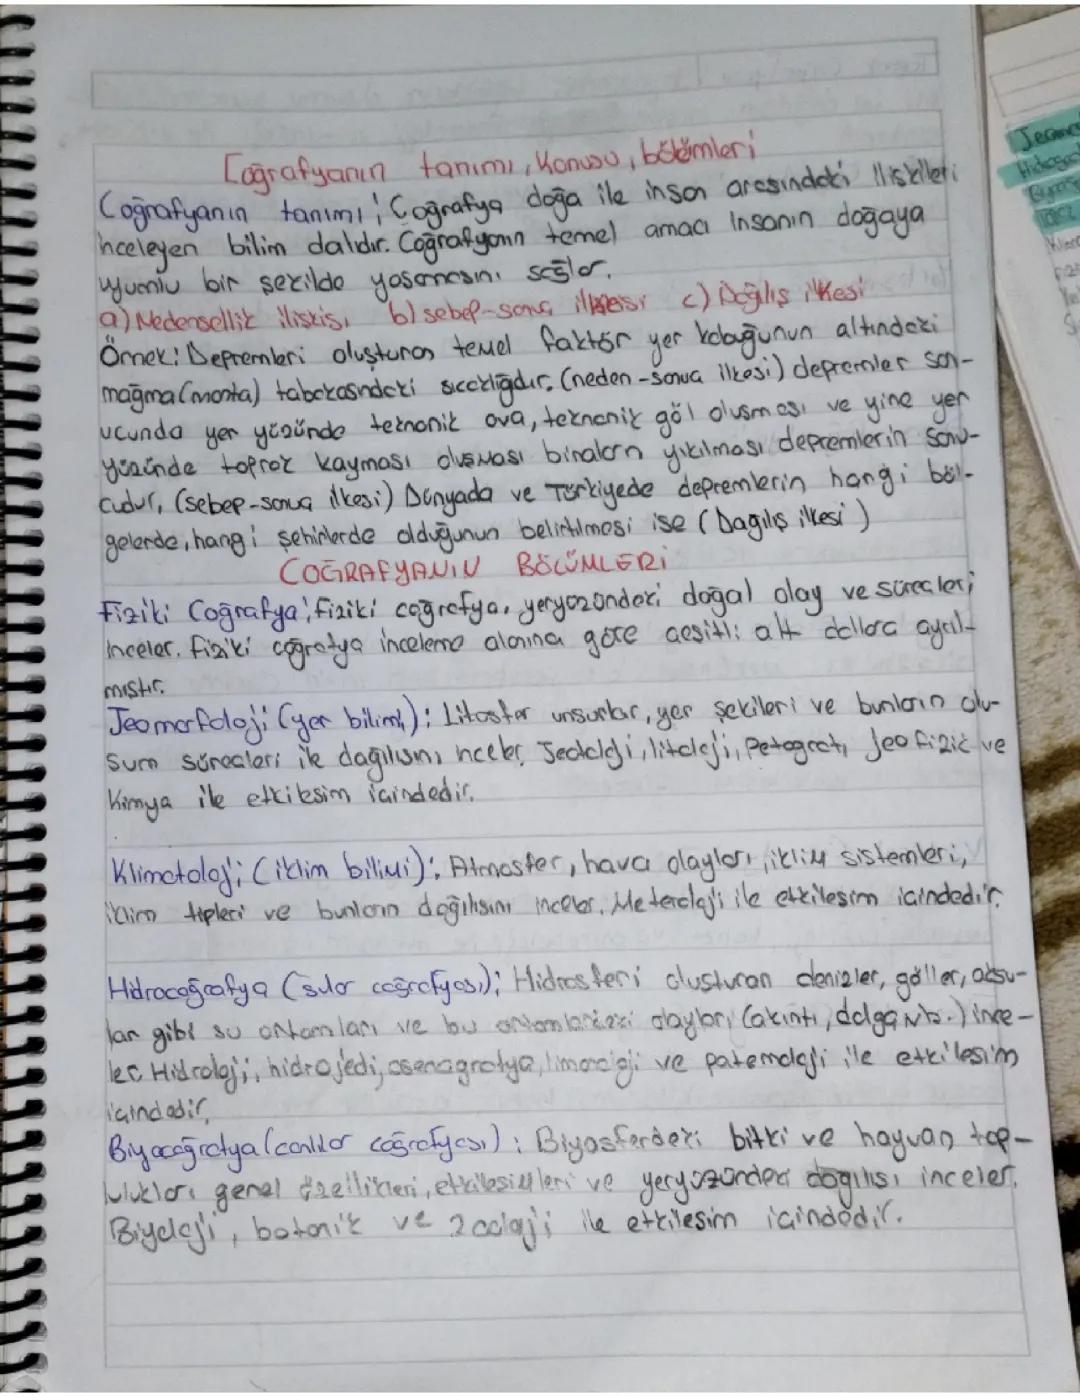 Coğrafyanın tanımı, Konusu, bölümleri
Coğrafyanın tanımı; Coğrafya doğa ile insan arasındaki ilişkileri
inceleyen bilim dalıdır. Coğrafyanın temel amacı insanın doğaya
uyumlu bir şekilde yaşamasını sağlar.
a) Nedensellik ilişkisi b) sebep-sonuç ilkesi c) Dağılış ilkesi
Örnek: Depremleri oluşturan temel faktör yer kabuğunun altındaki
mağma (manta) tabakasındaki sıcaklığdır. (neden-sonuç ilkesi) depremler son-
ucunda yer yüzünde teknonik ova, teknonik göl oluşması ve yine yer
yüzünde toprak kayması oluşması binaların yıkılması depremlerin sonu-
cudur, (sebep-sonuç ilkesi) Dünyada ve Türkiyede depremlerin hangi böl-
gelerde, hangi şehirlerde olduğunun belirtilmesi ise (Dağılış ilkesi)
COĞRAFYANIN BÖLÜMLERİ
Fiziki Coğrafya; fiziki coğrafya, yeryüzündeki doğal olay ve süreçleri
inceler. Fiziki coğrafya inceleme alanına göre çeşitli alt dallara ayrıl-
mıştır.
Jeomorfoloji (yer bilimi); Litosfer unsurlar, yer şekileri ve bunların olu-
şum süreçleri ile dağılışını inceler. Jeoloji, litoloji, Petografi, Jeofizik ve
Kimya ile etkileşim içindedir.
Klimatoloji; (iklim bilimi); Atmosfer, hava olayları, iklim sistemleri,
iklim tipleri ve bunların dağılışını inceler. Meteroloji ile etkileşim içindedir.
Hidrocoğrafya (sular coğrafyası); Hidrosferi oluşturan denizler, göller, akarsu-
lar gibi su ortamları ve bu ortamlardaki olayları (akıntı, dalga vb.) ince-
ler. Hidroloji, hidrojedi, osenagrafya, limnoloji ve patemoloji ile etkileşim
içindedir.
Biyocoğrafya (canlılar coğrafyası); Biyosferdeki bitki ve hayvan top-
lulukları genel özellikleri, etkileşimleri ve yeryüzündeki dağılışı inceler.
Biyoloji, botanik ve zooloji ile etkileşim içindedir.